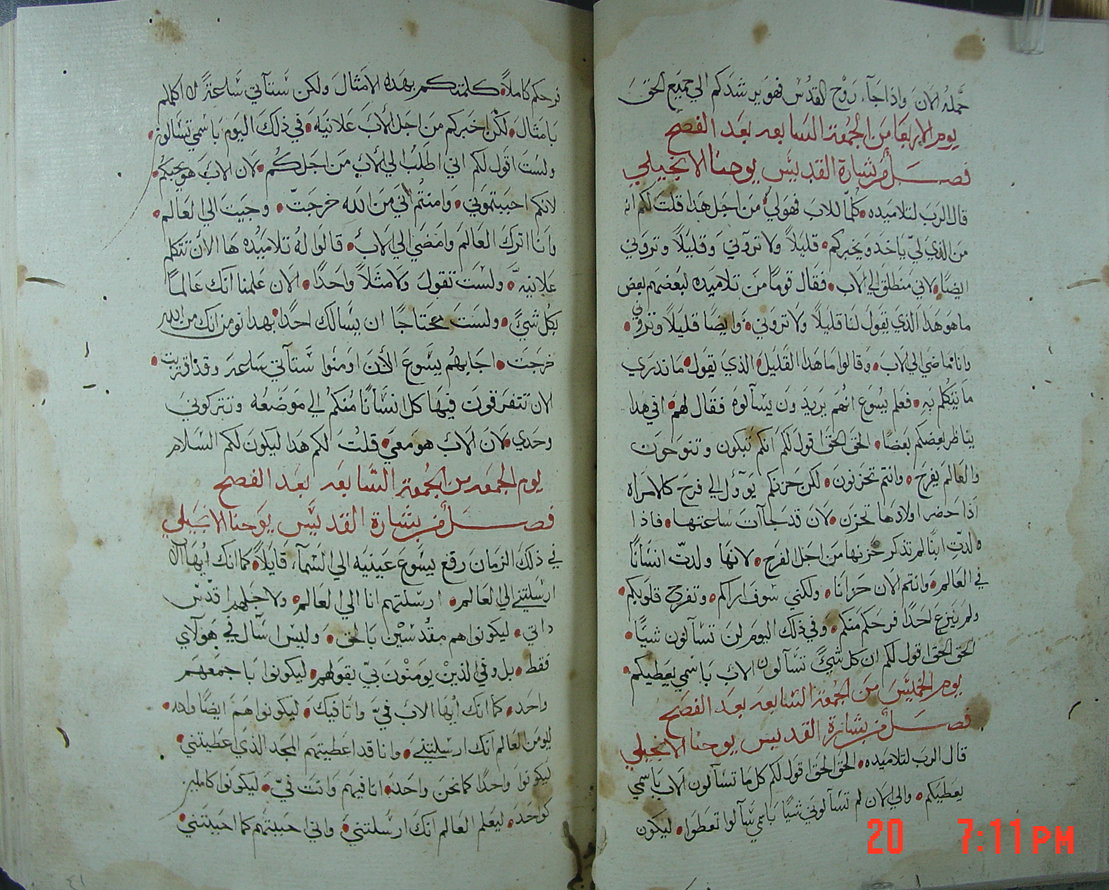 حمله الان واذا جآء روح القدس فهو يرشدكم الي جميع الحق
يوم الاربعا من الجمعة السابعه بعد الفصح
فصل من بشارة القديس يوحنا الانجيلي
قال الرب لتلاميذه كلما للاب فهو لي من اجل هذا قلت لكم انه
من الذي لي ياخد ويخبركم قليلاً ولا تروني وقليلاً وتروني
ايضًا لاني منطلق الي الاب فقال قومًا من تلاميذه لبعضهم بعض
ما هو هذا الذي يقول لنا قليلاً ولا تروني وايضًا قليلاً وتروني
وانا ماضي الي الاب وقالوا ما هذا القليل الذي يقول ما ندري
ما يتكلم به فعلم يسوع انهم يريدون يسآلوه فقال لهم افي هذا
يناظر بعضكم بعضًا الحق الحق اقول لكم انكم تبكون وتنوحون
والعالم يفرح وانتم تحزنون لكن حزنكم يوول الي فرح كالامراه
اذا حضر اولادها تحزن لان قد جآت ساعتها فاذا
ولدت ابنًا لم تذكر حزنها من اجل الفرح لانها ولدت انسانًا
في العالم وانتم الان حزانا ولكني سوف اراكم وتفرح قلوبكم
ولم ينزع احدًا فرحكم منكم وفي ذلك اليوم لن تسآلون شيًا
الحق الحق اقول لكم ان كل شيً تسآلون الاب باسمي يعطيكم
يوم الخميس من الجمعة السابعه بعد الفصح
فصل من بشارة القديس يوحنا الانجيلي
قال الرب لتلاميذه الحق الحق اقول لكم كل ما تسآلون الاب باسمي
يعطيكم والي الان لم تسآلوني شيًا باسمي سآلوا تعطوا ليكون
فرحكم كاملاً كلمتكم بهذه الامثال ولكن ستآتي ساعةً لا اكلمكم
بامثال لكن اخبركم من اجل الاب علانيه في ذلك اليوم باسمي تسالون
ولست اقول لكم اني اطلب الي الاب من اجلكم لان الاب هو يحبكم
لانكم احببتموني وامنتم آني من الله خرجت وجيت الي العالم
وانا اترك العالم وامضي الي الاب قالوا له تلاميذه ها الان تتكلم
علانيه ولست تقول ولا مثلاً واحدًا الان علمنا آنك عالمًا
بكل شيً ولست محتاجًا ان يسالك احدًا بهذا نومن انك من الله
خرجت اجابهم يسوع الان اومنوا ستآتي ساعه وقد اقربت
الان تتفرقون فيها كل انسانًا منكم الي موضعه وتتركوني
وحدي لان الاب هو معي قلت لكم هذا ليكون لكم السلام
يوم الجمعه من الجمعة السابعه بعد الفصح
فصل من بشارة القديس يوحنا الانجيلي
في ذلك الزمان رفع يسوع عينيه الي السمآء قايلاً كما انك ايها الاب
ارسلتني الي العالم ارسلتهم انا الي العالم ولاجلهم اقدس
ذاتي ليكونوا هم مقدسين بالحق وليس اسال في هولآي
فقط بل وفي الذين يومنون بي بقولهم ليكونوا باجمعهم
واحد كما انك ايها الاب فيّ وانا فيك ليكونوا هم ايضًا واحد
ليومن العالم آنك ارسلتني وانا قد اعطيتهم المجد الذي اعطيتني
ليكونوا واحدًا كما نحن واحد انا فيهم وانت فيّ ليكونوا كاملين
كوحد ليعلم العالم آنك ارسلتني واني احببتهم كما احببتني
20 7:11 PM